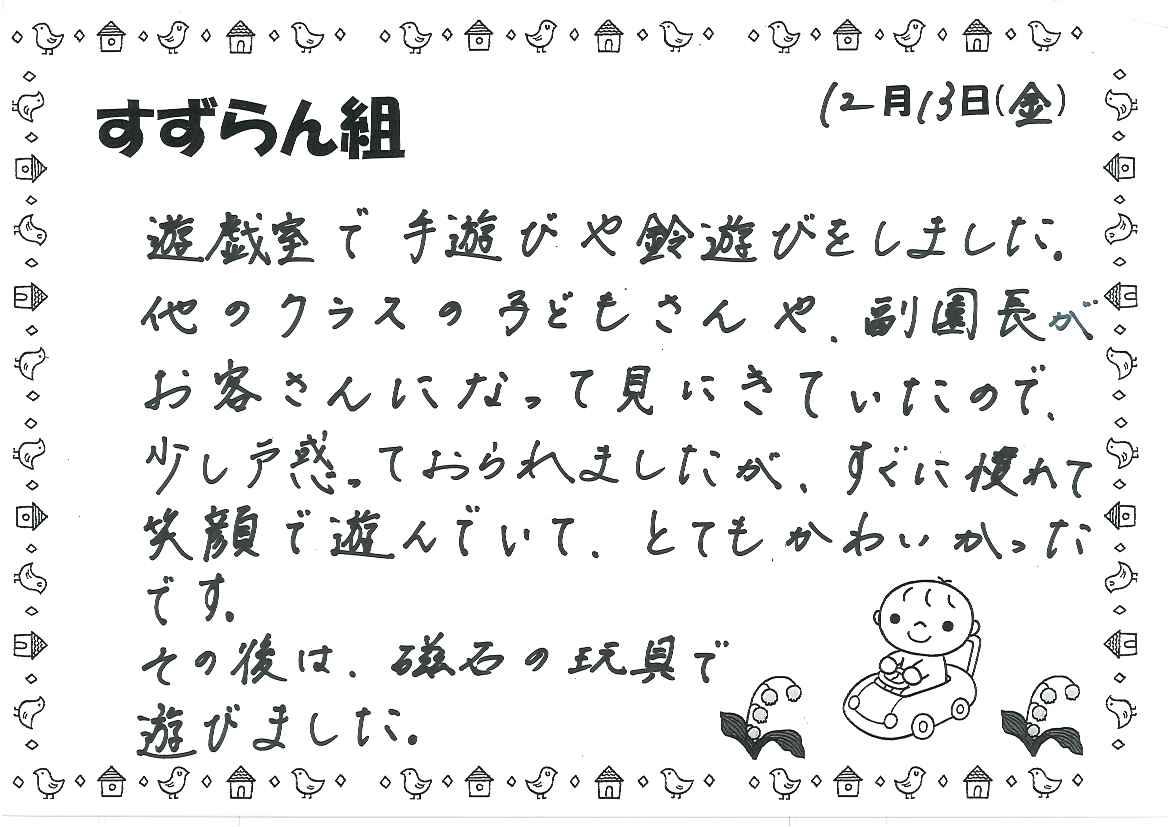 すずらん組
12月13日(金)
遊戯室で手遊びや鈴遊びをしました。
他のクラスの子どもさんや、副園長が
お客さんになって見にきていたので、
少し戸惑っておられましたが、すぐに慣れて
笑顔で遊んでいて、とてもかわいかった
です。
その後は、磁石の玩具で
遊びました。